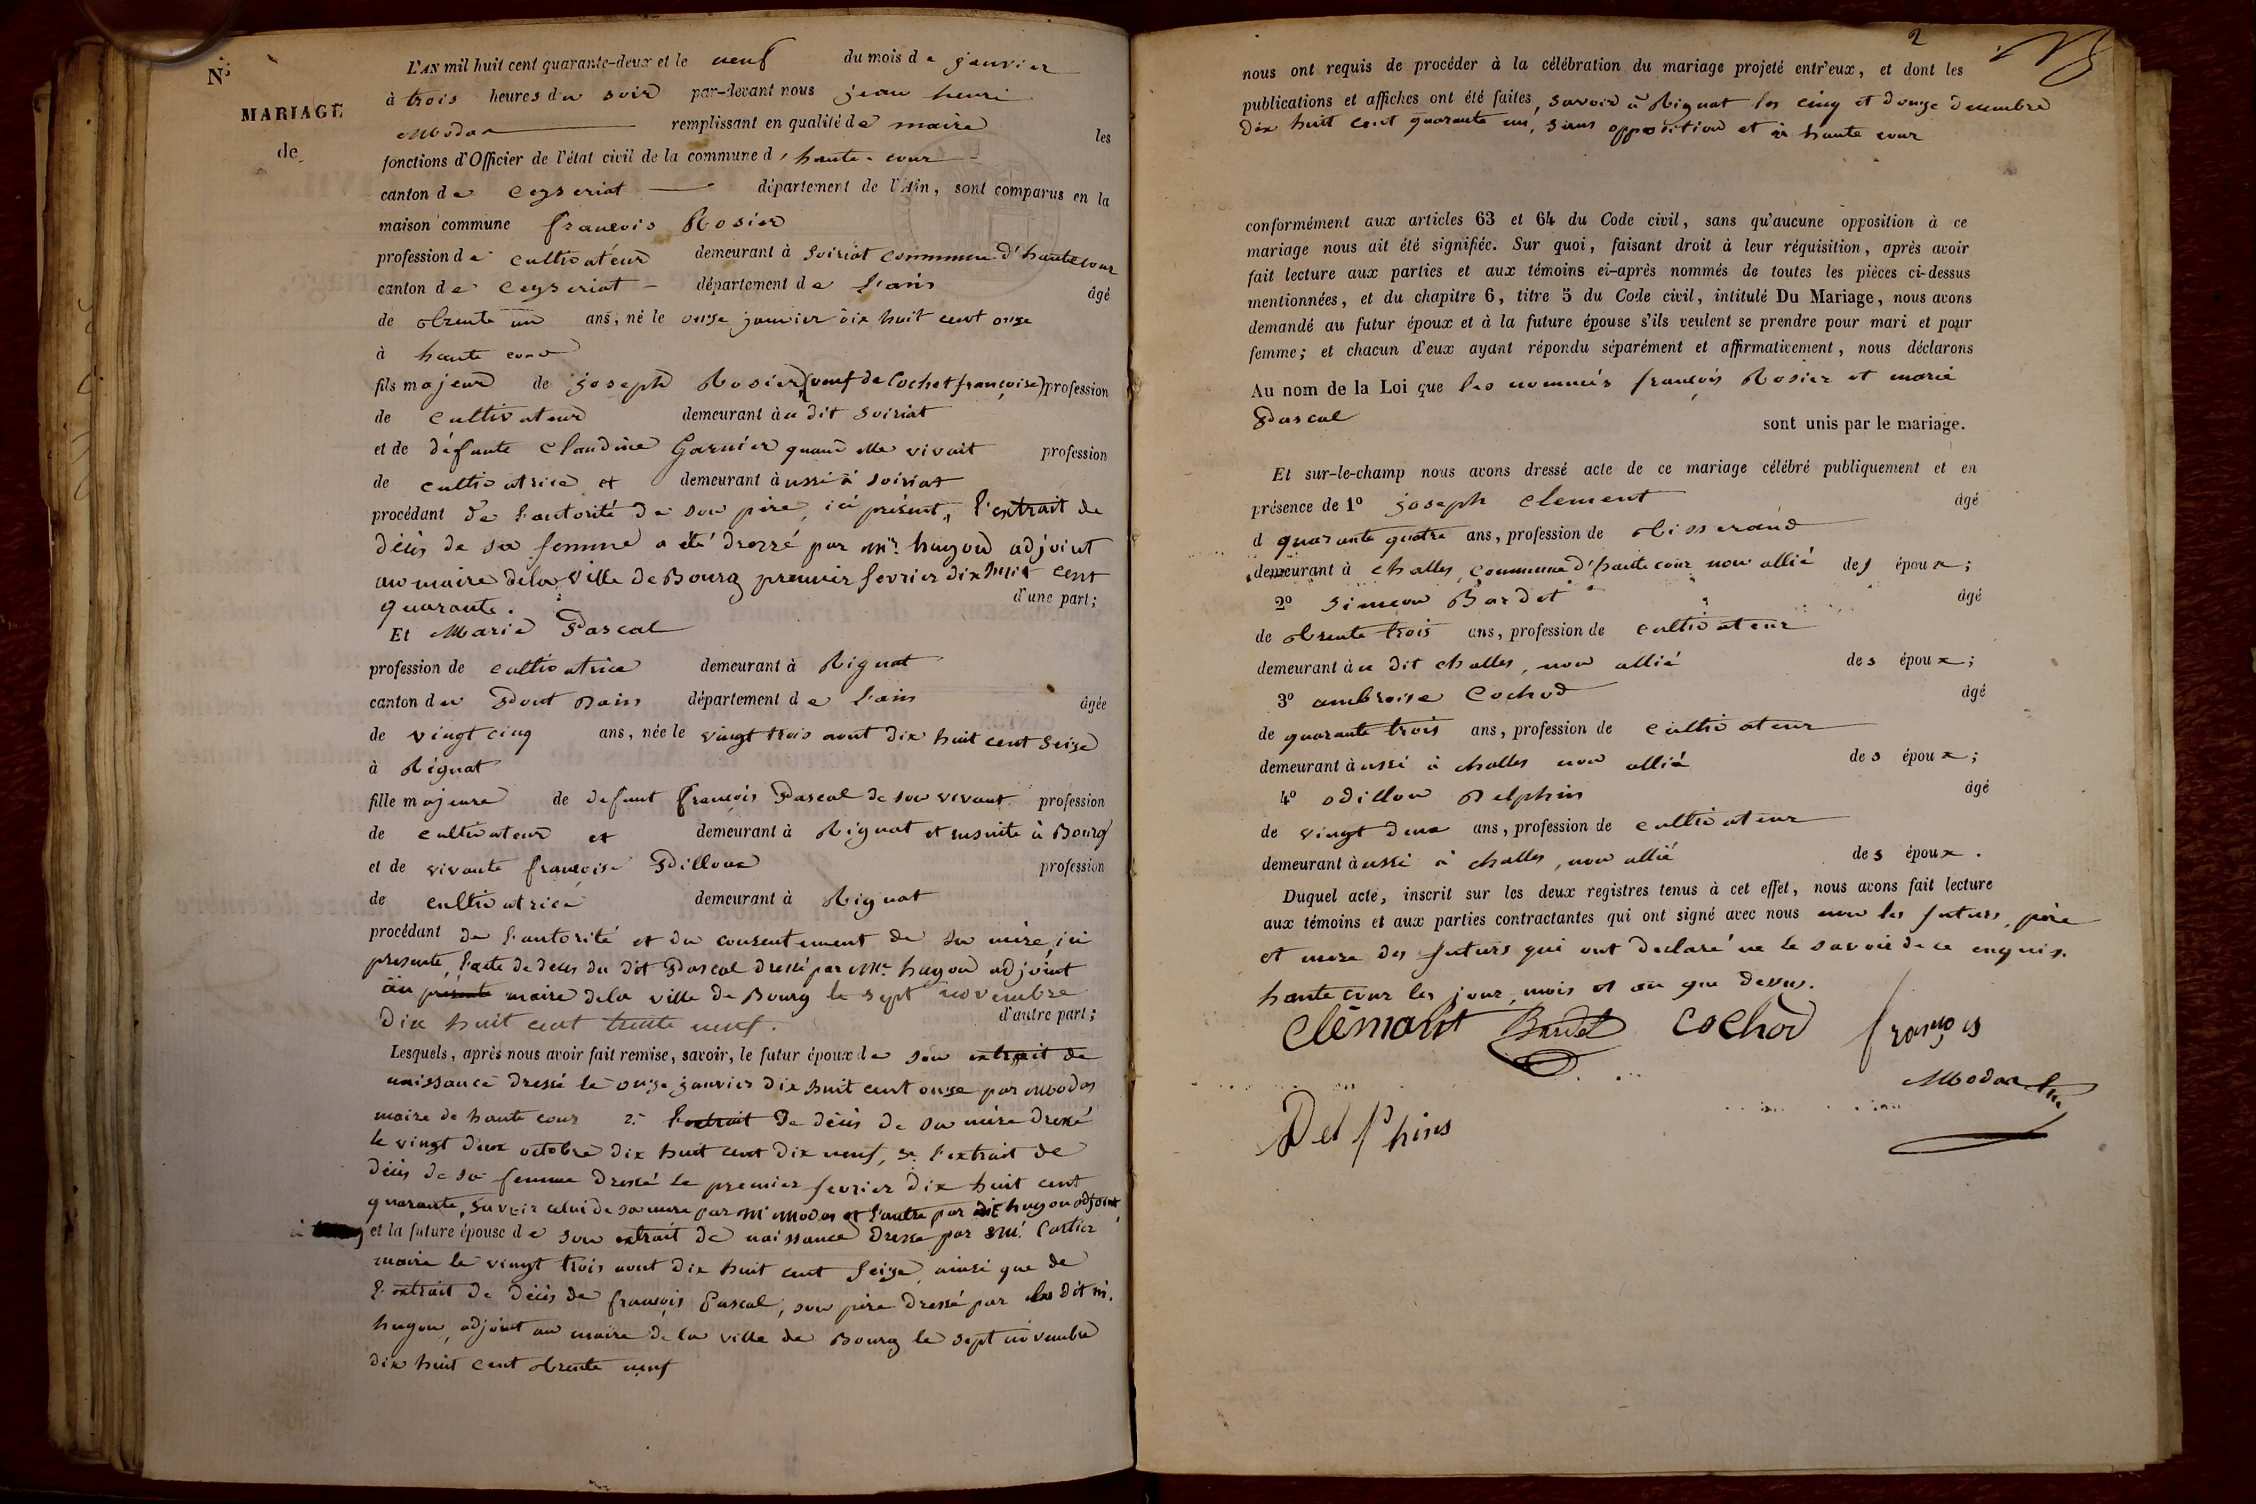 N°
MARIAGE
de
L'AN mil huit cent quarante-deux et le neuf du mois de janvier
à trois heures du soir par-devant nous jean henri
Modas remplissant en qualité de maire les
fonctions d'Officier de l'état civil de la commune d'haute-cour
canton de Ceyseriat département de l'Ain, sont comparus en la
maison commune françois Rosier
profession de cultivateur demeurant à Soiriat commune d'hautecour
canton de Ceyseriat département de l'ain âgé
de trente un ans, né le onze janvier dix huit cent onze
à haute cour
fils majeur de joseph Rosier, (veuf de Cochet françoise) profession
de cultivateur demeurant àu dit soiriat
et de défunte Claudine Garnier quand elle vivait profession
de cultivatrice et demeurant àussi à soiriat
procédant de l'autorité de son père, ici présent, l'extrait de
décès de sa femme a été dressé par mr. hugon adjoint
au maire dela ville de Bourg premier fevrier dix huit cent
quarante. d'une part;
Et Marie Pascal
profession de cultivatrice demeurant à Rignat
canton du Pont Dain département de l'ain âgée
de vingt cinq ans, née le vingt trois aout dix huit cent seize
à Rignat
fille majeure de defunt françois Pascal de son vivant profession
de cultivateur et demeurant à Rignat et ensuite à Bourg
et de vivante françoise Pilloux profession
de cultivatrice demeurant à Rignat
procédant de l'autorité et du consentement de sa mère, ici
presente, l'acte de deces du dit Pascal dressé par Mr. hugon adjoint
au présente maire dela ville de Bourg le sept novembre
dix huit cent trente neuf. d'autre part;
Lesquels, après nous avoir fait remise, savoir, le futur époux de son extrait de
naissance dressé le onze janvier dix huit cent onze par modas
maire de haute cour 2° l'extrait de décès de sa mère dressé
le vingt deux octobre dix huit cent dix neuf, 3° l'extrait de
décès de sa femme dressé le premier fevrier dix huit cent
quarante, savoir celui de sa mere par mr modas et l'autre par dit hugon adjoint
et la future épouse de son extrait de naissance dressé par mr. Cartier
maire le vingt trois aout dix huit cent seize, ainsi que de
l'extrait de décès de françois Pascal, son père dressé par le dit m.
hugon, adjoint au maire de la ville de Bourg le sept novembre
dix huit cent trente neuf
2
nous ont requis de procéder à la célébration du mariage projeté entr'eux, et dont les
publications et affiches ont été faites, savoir à Rignat les cinq et douze decembre
dix huit cent quarante un, sans opposition et à haute cour
conformément aux articles 63 et 64 du Code civil, sans qu'aucune opposition à ce
mariage nous ait été signifiée. Sur quoi, faisant droit à leur réquisition, après avoir
fait lecture aux parties et aux témoins ci-après nommés de toutes les pièces ci-dessus
mentionnées, et du chapitre 6, titre 5 du Code civil, intitulé Du Mariage, nous avons
demandé au futur époux et à la future épouse s'ils veulent se prendre pour mari et pour
femme; et chacun d'eux ayant répondu séparément et affirmativement, nous déclarons
Au nom de la Loi que les nommés françois Rosier et marie
Pascal sont unis par le mariage.
Et sur-le-champ nous avons dressé acte de ce mariage célébré publiquement et en
présence de 1° joseph Clement âgé
d quarante quatre ans, profession de tisserand
demeurant à challes, commune d'haute cour non allié des époux;
2° Simeon Bardet âgé
de trente trois ans, profession de cultivateur
demeurant àu dit challes, non allié des époux;
3° ambroise Cochod âgé
de quarante trois ans, profession de cultivateur
demeurant àussi à challes non allié des époux;
4° odillon Delphin âgé
de vingt deux ans, profession de cultivateur
demeurant àussi à challes, non allié des époux.
Duquel acte, inscrit sur les deux registres tenus à cet effet, nous avons fait lecture
aux témoins et aux parties contractantes qui ont signé avec nous non les futurs, père
et mere des futurs qui ont declaré ne le savoir de ce enquis.
haute cour les jour, mois et an que dessus.
Clémant Bardet Cochod françois
Modas
Delphins